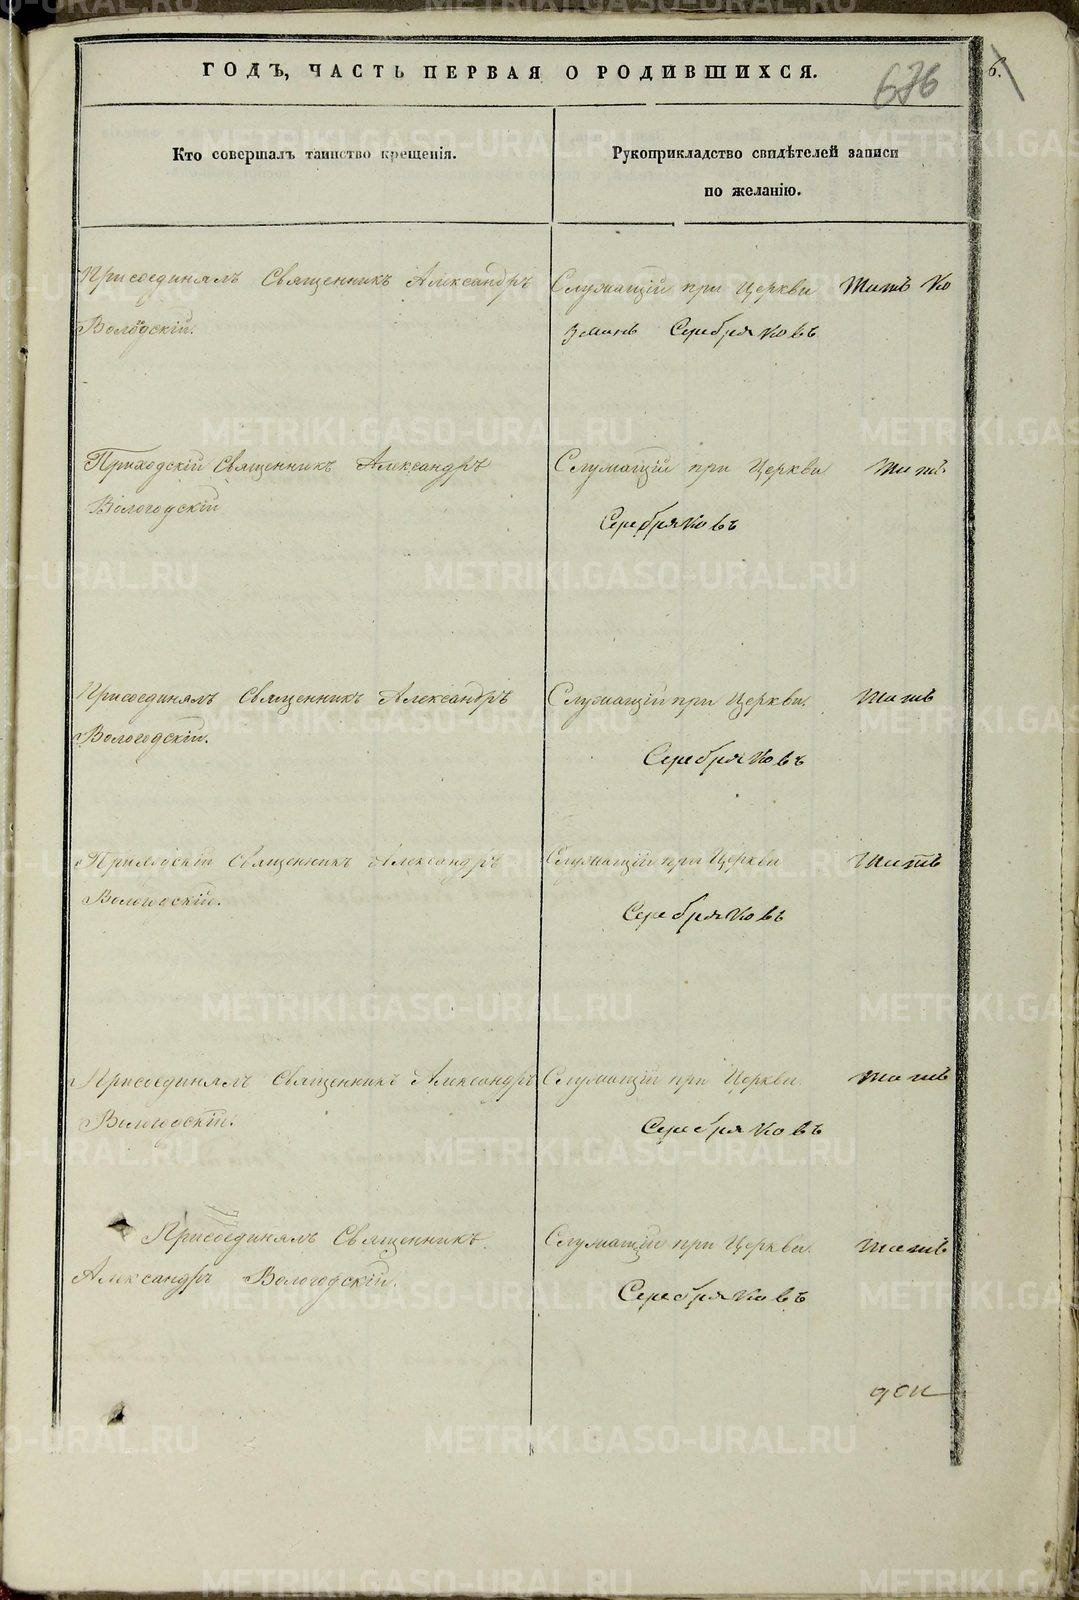 ГОДЪ, ЧАСТЬ ПЕРВАЯ О РОДИВШИХСЯ.
676
6.
Кто совершалъ таинство крещенія.
Рукоприкладство свидѣтелей записи
по желанію.
Присоединялъ Священникъ Александръ
Вологодскій.
Служащій при Церкви Титъ Ко
зминъ Серебряковъ
Приходскій Священникъ Александръ
Вологодскій
Служащій при Церкви Титъ
Серебряковъ
Присоединялъ Священникъ Александръ
Вологодскій.
Служащій при Церкви. Титъ
Серебряковъ
Приходскій Священникъ Александръ
Вологодскій.
Служащій при Церкви Титъ
Серебряковъ
Присоединялъ Священникъ Александръ
Вологодскій.
Служащій при Церкви Титъ
Серебряковъ
Присоединялъ Священникъ
Александръ Вологодскій.
Служащій при Церкви. Титъ
Серебряковъ
METRIKI.GASO-URAL.RU